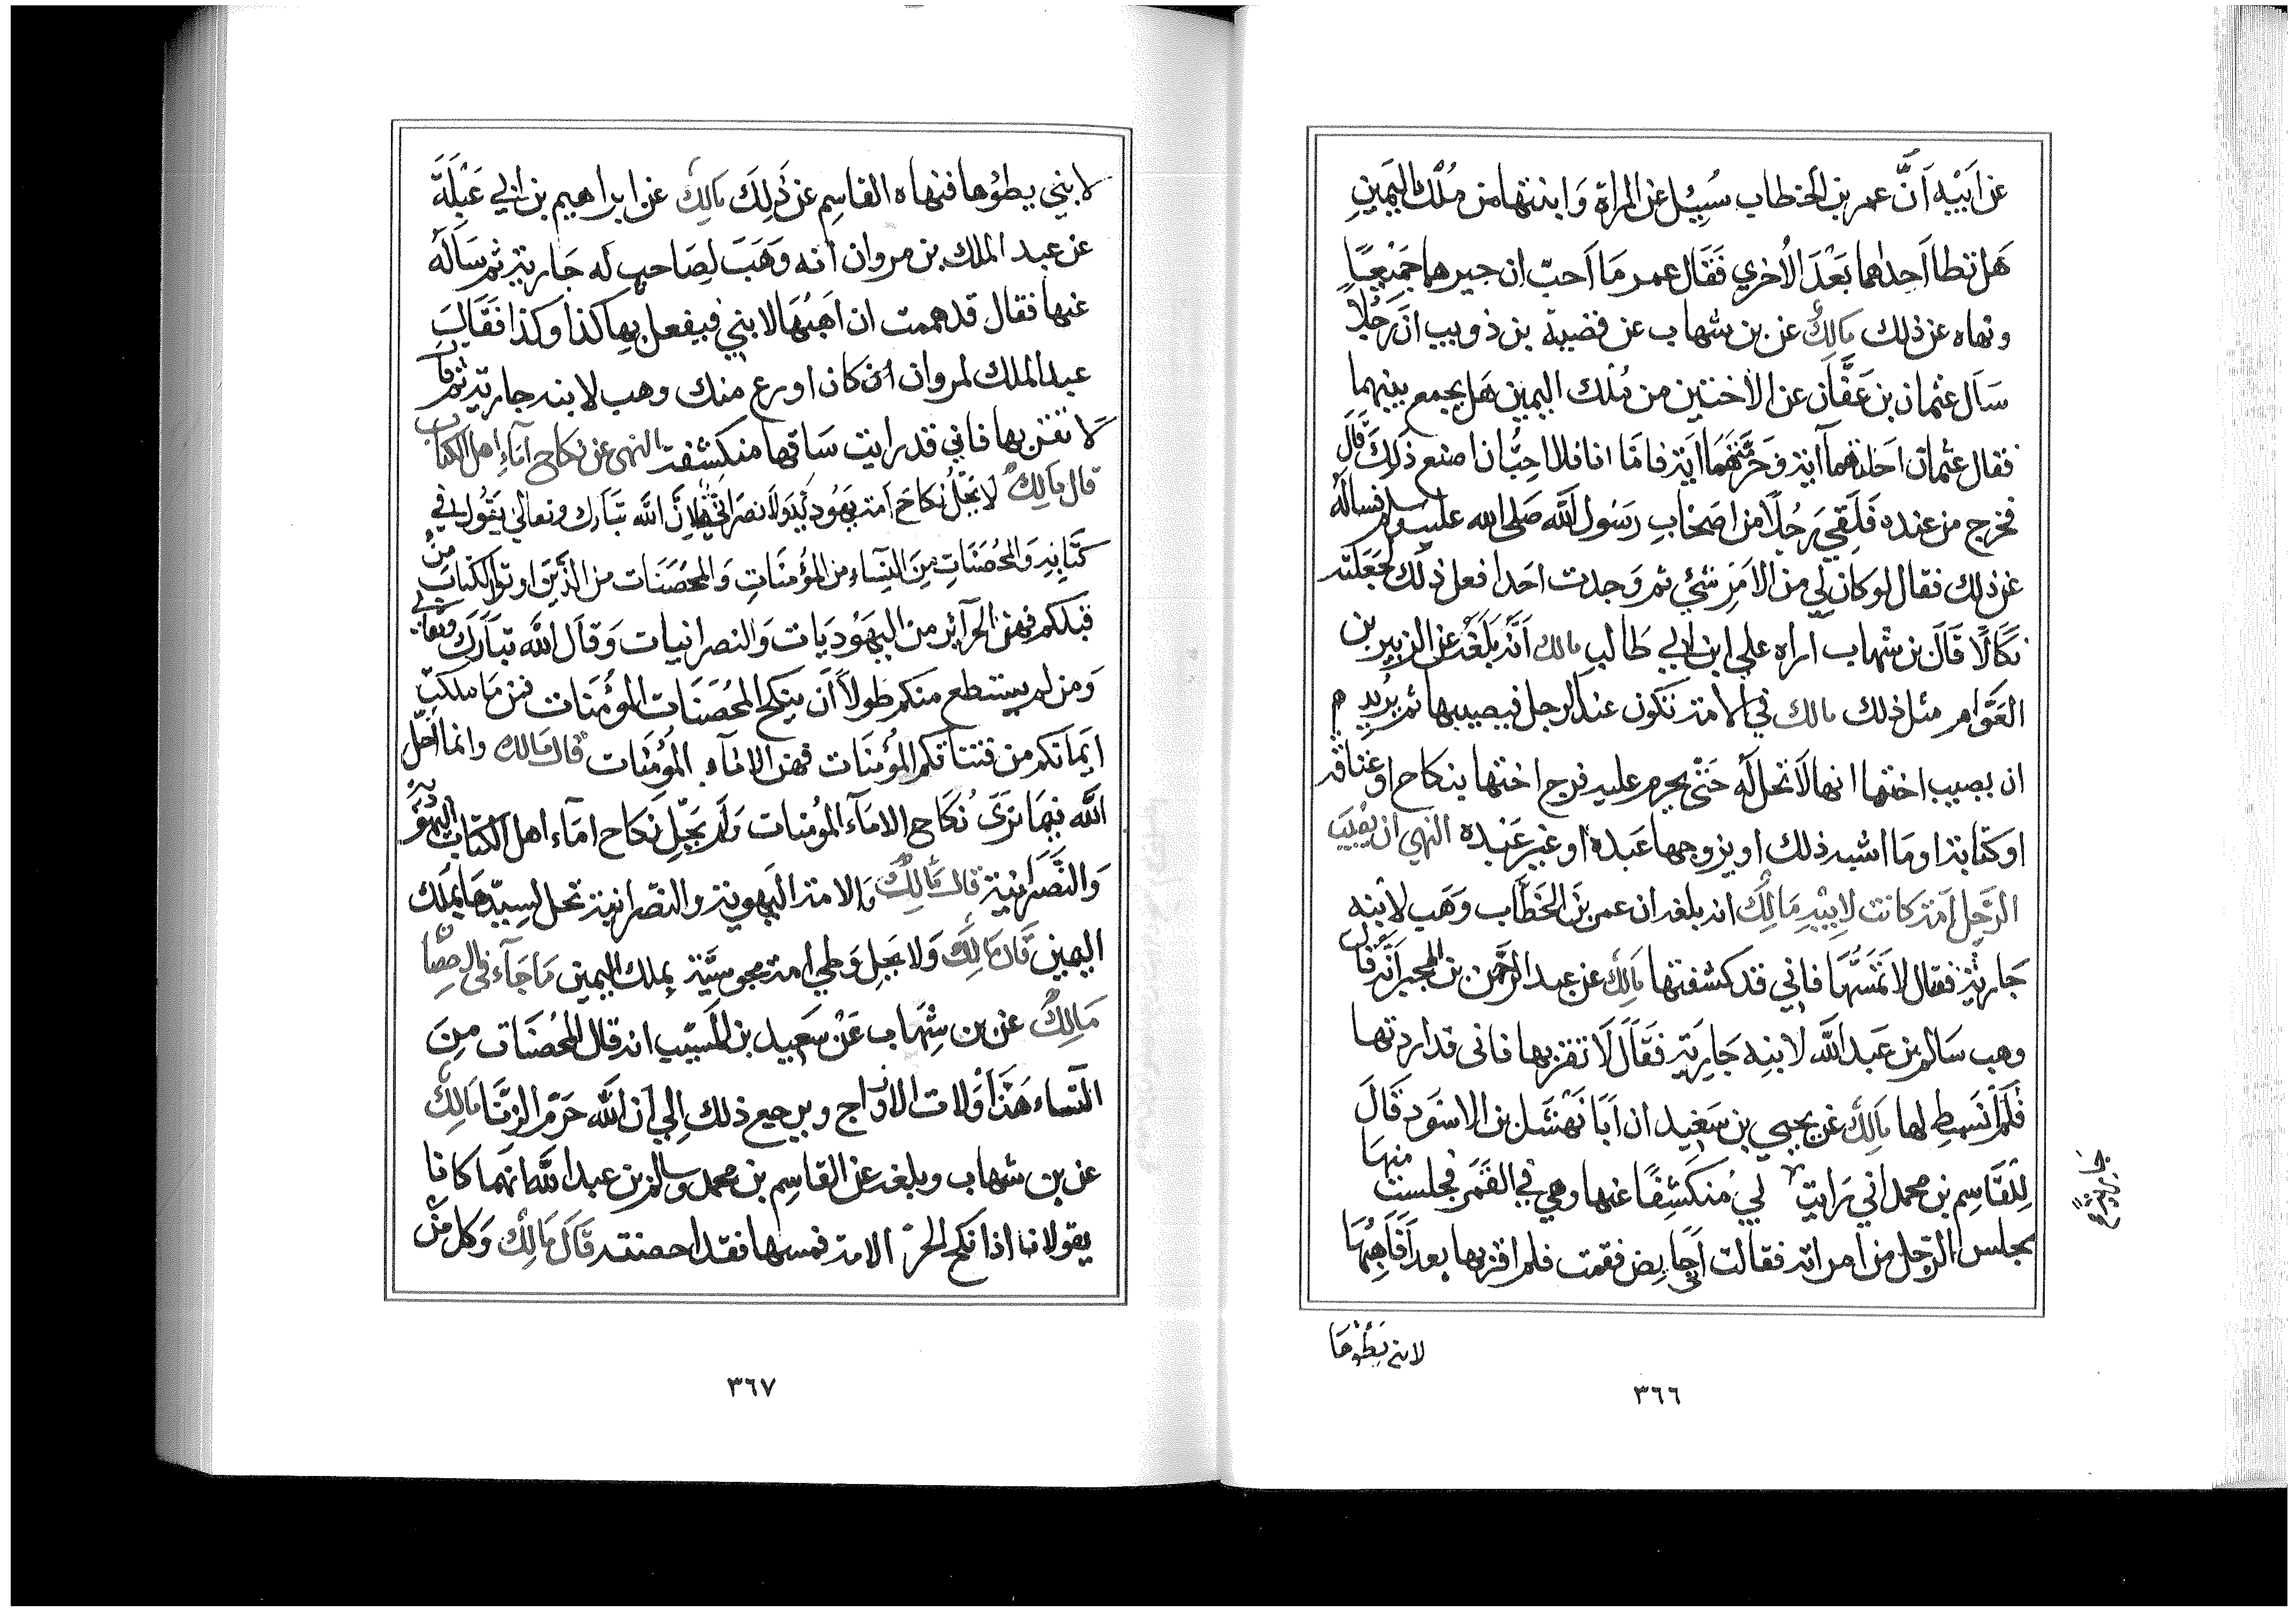 عن اَبيْه اَنَّ عمر بن الخطاب سُئِل عن المراة وَابنتها من مُلْك اليَمينِ
هَل تطا احداهما بَعْدَ الأخري فَقَال عمر مَا اَحبّ ان جيرهما جَميْعًا
ونهاه عن ذلك مَالِكٌ عن بن شهاب عن قضيبة بن ذوبيب انّ رَجُلًا
سَاَل عثمان بن عَفَّان عن الأختين من مُلْك اليمين هَل يجمع بينهما
فقال عثمان احلتهما آية وَحَرَّمَتْهُمَا اية فامّا انا فلا احِبُّ ان اصنع ذَلِكَ قَالَ
فخرج من عنده فَلَقِيَ رَجُلًا من اصْحَابِ رَسُول اللَّه صَلى الله عليه وسلم فساله
عن ذلك فقال لو كان لِي من الاَمْرِ شئ ثم وَجدت احدا فعل ذلك لجَعَلته
نَكَالًا قَالَ بن شهاب اراه علي ابن ابي طَالب مالك اَنَّه بَلَغَه عن الزبير بن
العَوَّام مثل ذلك مالك في الامة تكون عند الرجل فيصيبها ثم يُرِيد
ان يصيب اختها انها لاَ تحل لَه حَتّٰى يحرم عليه فرج اختها بنكاح او عتاقه
او كتابة او مَا اشبه ذلك او يزوجها عَبده او غير عَبْده النهي ان يُصْيبَ
الرَّجل اَمَة كانت لابِيْهِ مَالِكٌ انه بلغه ان عمر بن الخَطَّاب وَهَب لابْنه
جَارية فقال لاَ تَمَسَّهَا فاني قد كشفتها مَالِكٌ عن عبد الرَّحمن بن المجبر اَنَّه قال
وهب سَالم بن عَبد اللَّه لابنِه جَارِيَة فَقَالَ لَا تقربها فانى قد اردتها
فَلَمْ اَنْبَسِطْ لها مَالِكٌ عن يحيي بن سَعِيد ان اَبَا نَهْشَل بن الاسْوَد قَالَ
لِلقَاسِم بن محمد اني رَايت لِي مُنكَشِفًا عنها وهي في القَمَر فجلست منهَا
مجلس الرّجل من امراته فقالت اني حايض فقمت فلم اقربها بعد اَفَاَهِبُهَا
لابني يَطَؤهَا
٣٦٦
لابني يطؤها فنهاه القاسِم عن ذَلِكَ مَالِكٌ عن ابراهيم بن ابي عَبْلَة
عن عبد الملك بن مروان انه وَهَبَ لِصَاحب لَه جَارية ثم سَاَلَه
عنها فقال قد هممت ان اَهَبَهَا لابني فيفعل بها كذا وكذا فَقَال
عبد الملك لمروان كان اورع منك وهب لابنه جارية ثم قال
لاَ تقربها فاني قد رايت سَاقها منكشفة النهي عن نكاح اماء اهل الكتاب
قال مَالِكٌ لاَ يَحِلُّ نكاحَ امة يَهُودية وَلاَ نصرَانية لاِنَّ اللَّه تبَارك وتعالى يَقُول في
كتَابِه وَالمُحصَنَاتِ مِنَ النِّسَاء من المؤْمِنَاتِ وَالمحصَنَات من الَّذِيْنَ اوتوا الكتاب مِنْ
قبلكم فهن الحرآئر من اليَهُوْديَات وَالنصرانيات وَقَال اللَّه تبَارَك وتعَالي
وَمن لم يستطع منكم طولاً اَن ينكح المُحصَنَات المؤمِنَات فمن مَا ملكت
ايمَانكم من فتياتكم المؤمنَات فهن الامَاء المُؤمنَات قَال مَالك وانما احَلّ
اللَّه فيمَا نرَى نُكَاح الامَاء المؤُمنات وَلَم يَحلِلْ نكَاح امَاء اهل الكتَاب اليهُوديه
وَالنَّصَرانية قال مَالِكٌ وَالامة اليَهودية والنّصرانية تحل لسيّدهَا بملك
اليمين قَال مَالِكٌ وَلاَ يحلّ وَطي امة مجوسيَّة بملك اليمين مَا جَآءَ في الاحصَان
مَالِكٌ عن بن شِهَاب عَنْ سَعيد بن المسَيّب انه قال المحصَنَات مِنَ
النّسَاء هَذا اوْلات الأزواج ويرجع ذلك اِلي اَن اللَّه حَرّم الزنَّا مَالِكٌ
عن بن شهاب وبلغه عن القاسِم بن محمد وسَالم بن عبد اللَّه انهَما كانا
يقولان اذا نكح الحرّ الامة فمسها فقد احصنته قَالَ مَالِكٌ وَكل منْ
٣٦٧